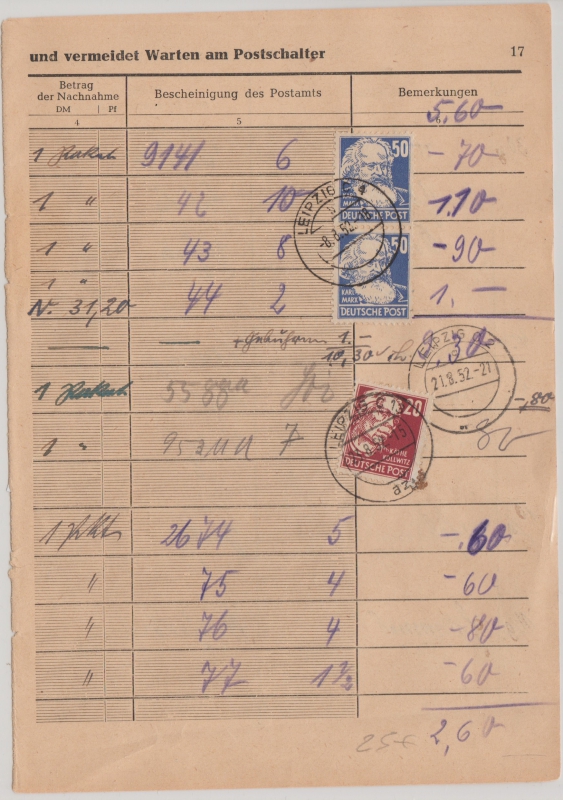 und vermeidet Warten am Postschalter 17
Betrag der Nachnahme Bescheinigung des Postamts Bemerkungen
DM Pf
4 5 6
5,60
1 Paket 9141 6 50 -70
KARL MARX
DEUTSCHE POST
1 " 42 10 1,10
LEIPZIG
1 " 43 8 50 -90
1 " 44 2 1,-
KARL MARX
DEUTSCHE POST
N. 31,20
+ Gebühren 1.- 9,30
10,30
LEIPZIG
21.8.52-21
1 Paket -,80
LEIPZIG C
20
1 " 7
KÄTHE KOLLWITZ
DEUTSCHE POST
1 Pkt 2674 5 -.60
" 75 4 -60
" 76 4 -80
" 77 1 1/2 -60
2,60